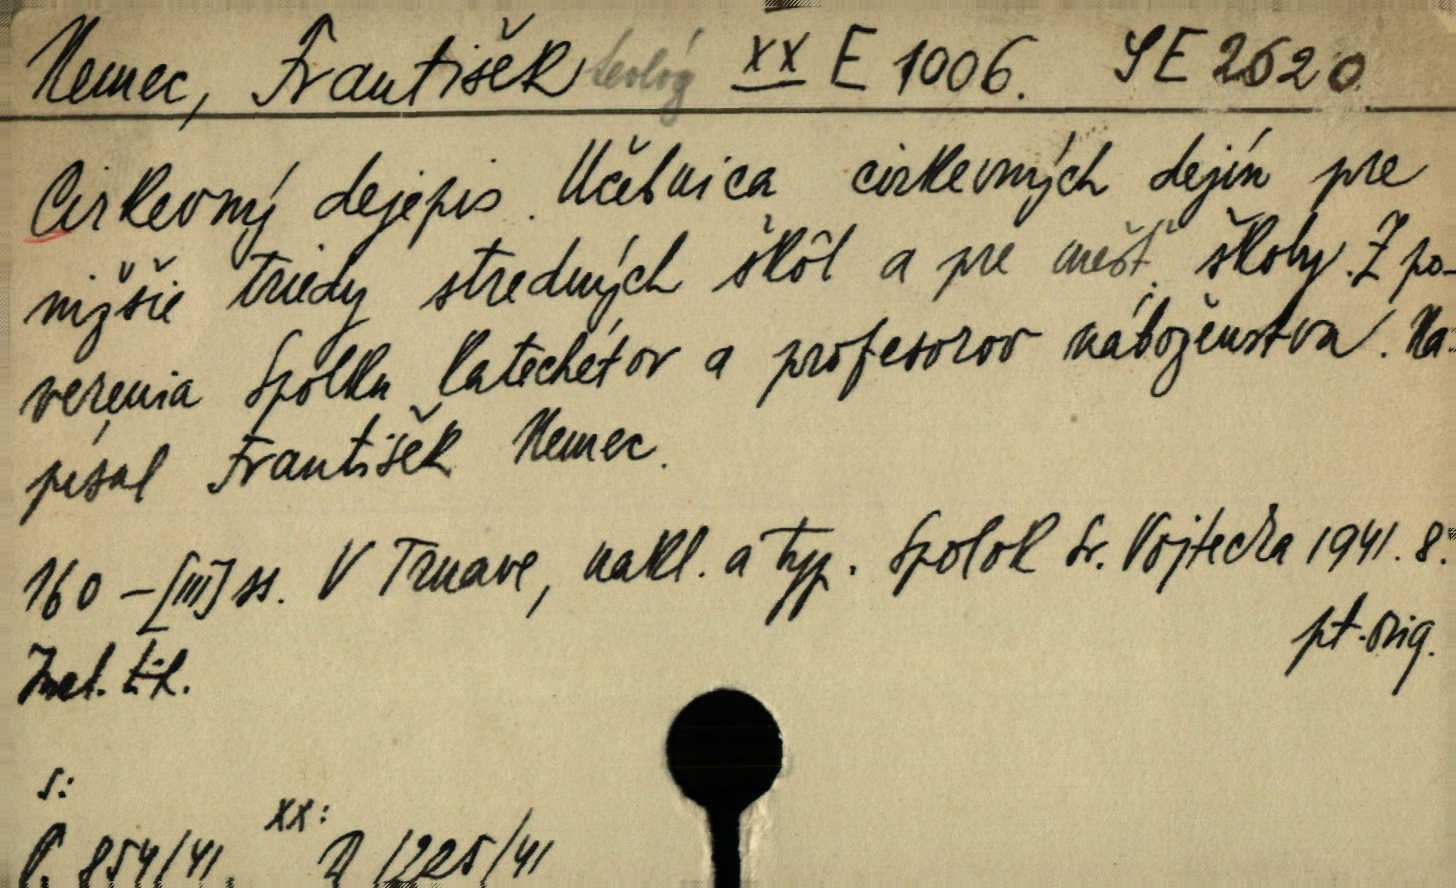 Nemec, František teológ XX E 1006. SE 2620
Cirkevný dejepis. Učebnica cirkevných dejín pre
nižšie triedy stredných škôl a pre mešť. školy. Z po-
verenia Spolku katechétov a profesorov náboženstva. Na-
písal František Nemec.
160 - [III] ss. V Trnave, nakl. a typ. Spolok Sv. Vojtecha 1941. 8°
pt. orig.
lit.
S:
XX:
854/41. 1225/41